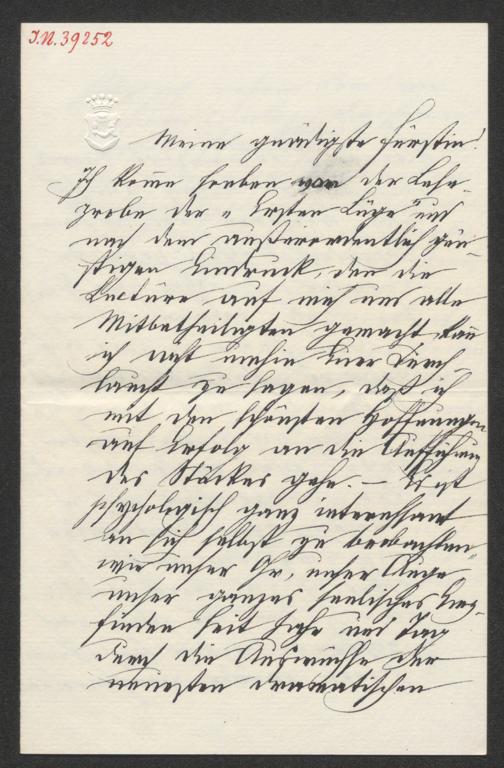 I.N. 39252
Meine gnädigste Fürstin!
Ich komme soeben von der Lese-
probe der "Ersten Lüge" und
nach dem außerordentlich gün-
stigen Eindruck, den die
Lectüre auf mich und alle
Mitbetheiligten gemacht, kann
ich nicht umhin Euer Durch-
laucht zu sagen, daß ich
mit den schönsten Hoffnungen
auf Erfolg an die Aufführung
des Stückes gehe. — Es ist
psychologisch ganz interessant
an sich selbst zu beobachten,
wie unser Ohr, unser Auge
unser ganzes seelisches Emp-
finden seit Jahr und Tag
durch die Auswüchse der
neuesten dramatischen